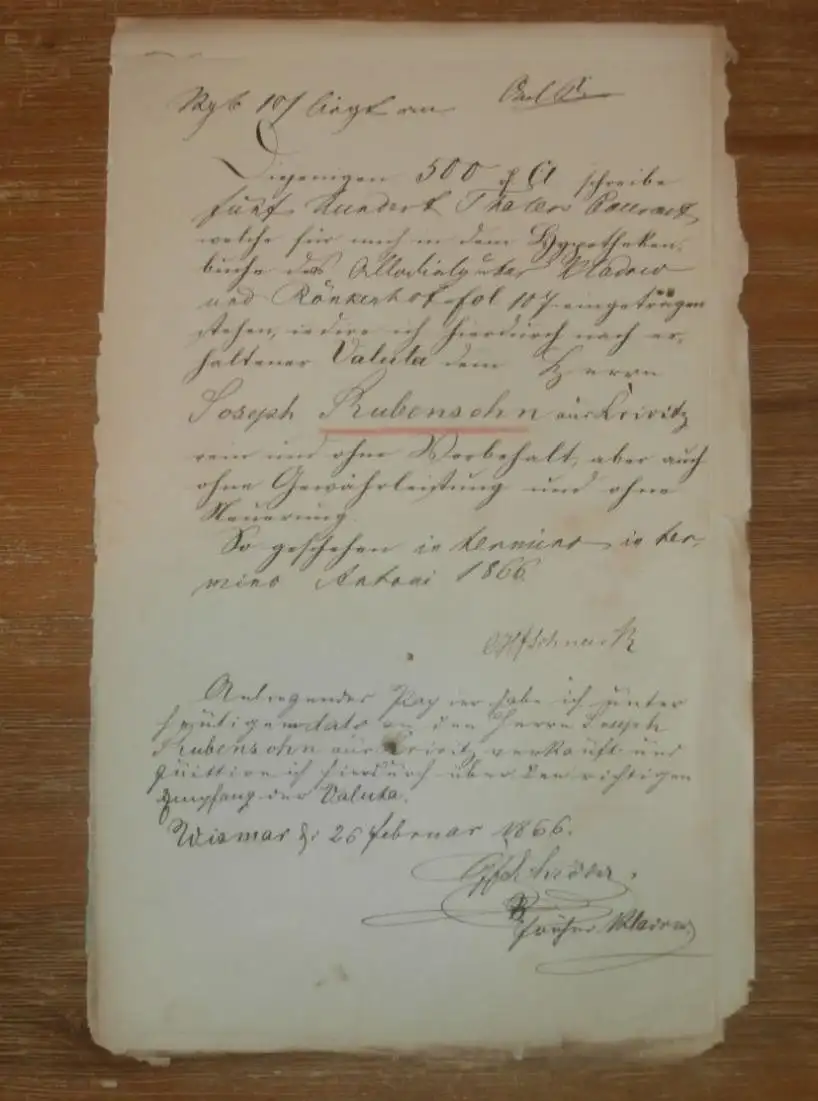 107 liegt an
Diejenigen 500 rf Ct schreibe
fünf hundert Thaler Courant,
welche für mich in dem Hypotheken-
buche des Allodialgutes Kladow
und Rönkenhof fol 107 eingetragen
stehen, cedire ich hierdurch nach er-
haltener Valuta dem Herrn
Joseph Rubensohn aus Krivitz
rein und ohne Vorbehalt, aber auch
ohne Gewährleistung und ohne
Neuerung.
So geschehen in termino in ter-
mino Antoni 1866

Anliegendes Papier habe ich unter
heutigem dato an den Herrn Joseph
Rubensohn aus Krivitz verkauft und
quittire ich hierdurch über den richtigen
Empfang der Valuta.
Wismar d: 26 Februar 1866.
Schröder,
früher Kladow.